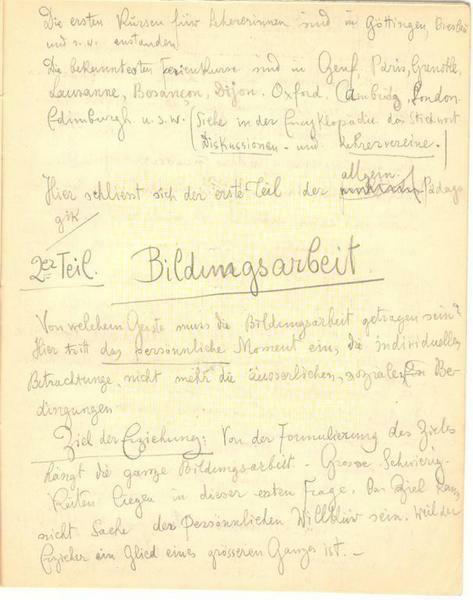 Die ersten Kürsen für Lehrerinnen sind in Göttingen, Breslau
und s. w. enstanden.
Die bekanntesten Ferienkurse sind in Genf, Paris, Grenoble,
Lausanne, Besançon, Dijon. Oxford. Cambridg, London.
Edimburgh. u. s. w. (Siehe in der Encyklopädie das Stichwort
Diskussionen - und Lehrervereine.)
allgem.
Hier schliesst sich der erste Teil der Pädago
gik
2er Teil. Bildungsarbeit.
Von welchem Geiste muss die Bildungsarbeit getragen sein?
Hier tritt das persönnliche Moment ein, die individuellen
Betrachtunge, nicht mehr die äusserlichen, sozialen Be-
dingungen
Ziel der Erziehung: Von der Formulierung des Zieles
hängt die ganze Bildungsarbeit - Grosse Schwierig-
keiten liegen in dieser ersten Frage. Das Ziel kann
nicht Sache der Persönnlichen Willkür sein. Weil der
Erzieher ein Glied eines grösseren Ganzes ist. -